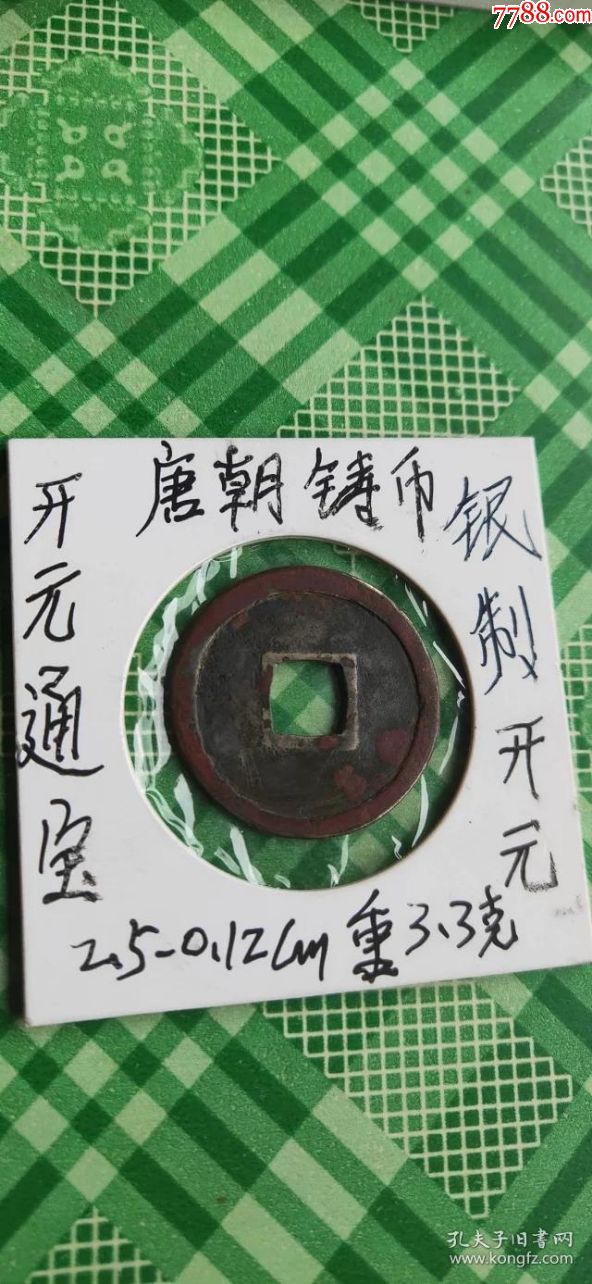 7788.com
唐朝铸币
开元通宝
银制开元
2.5-0.12cm 重3.3克
孔夫子旧書网
www.kongfz.com